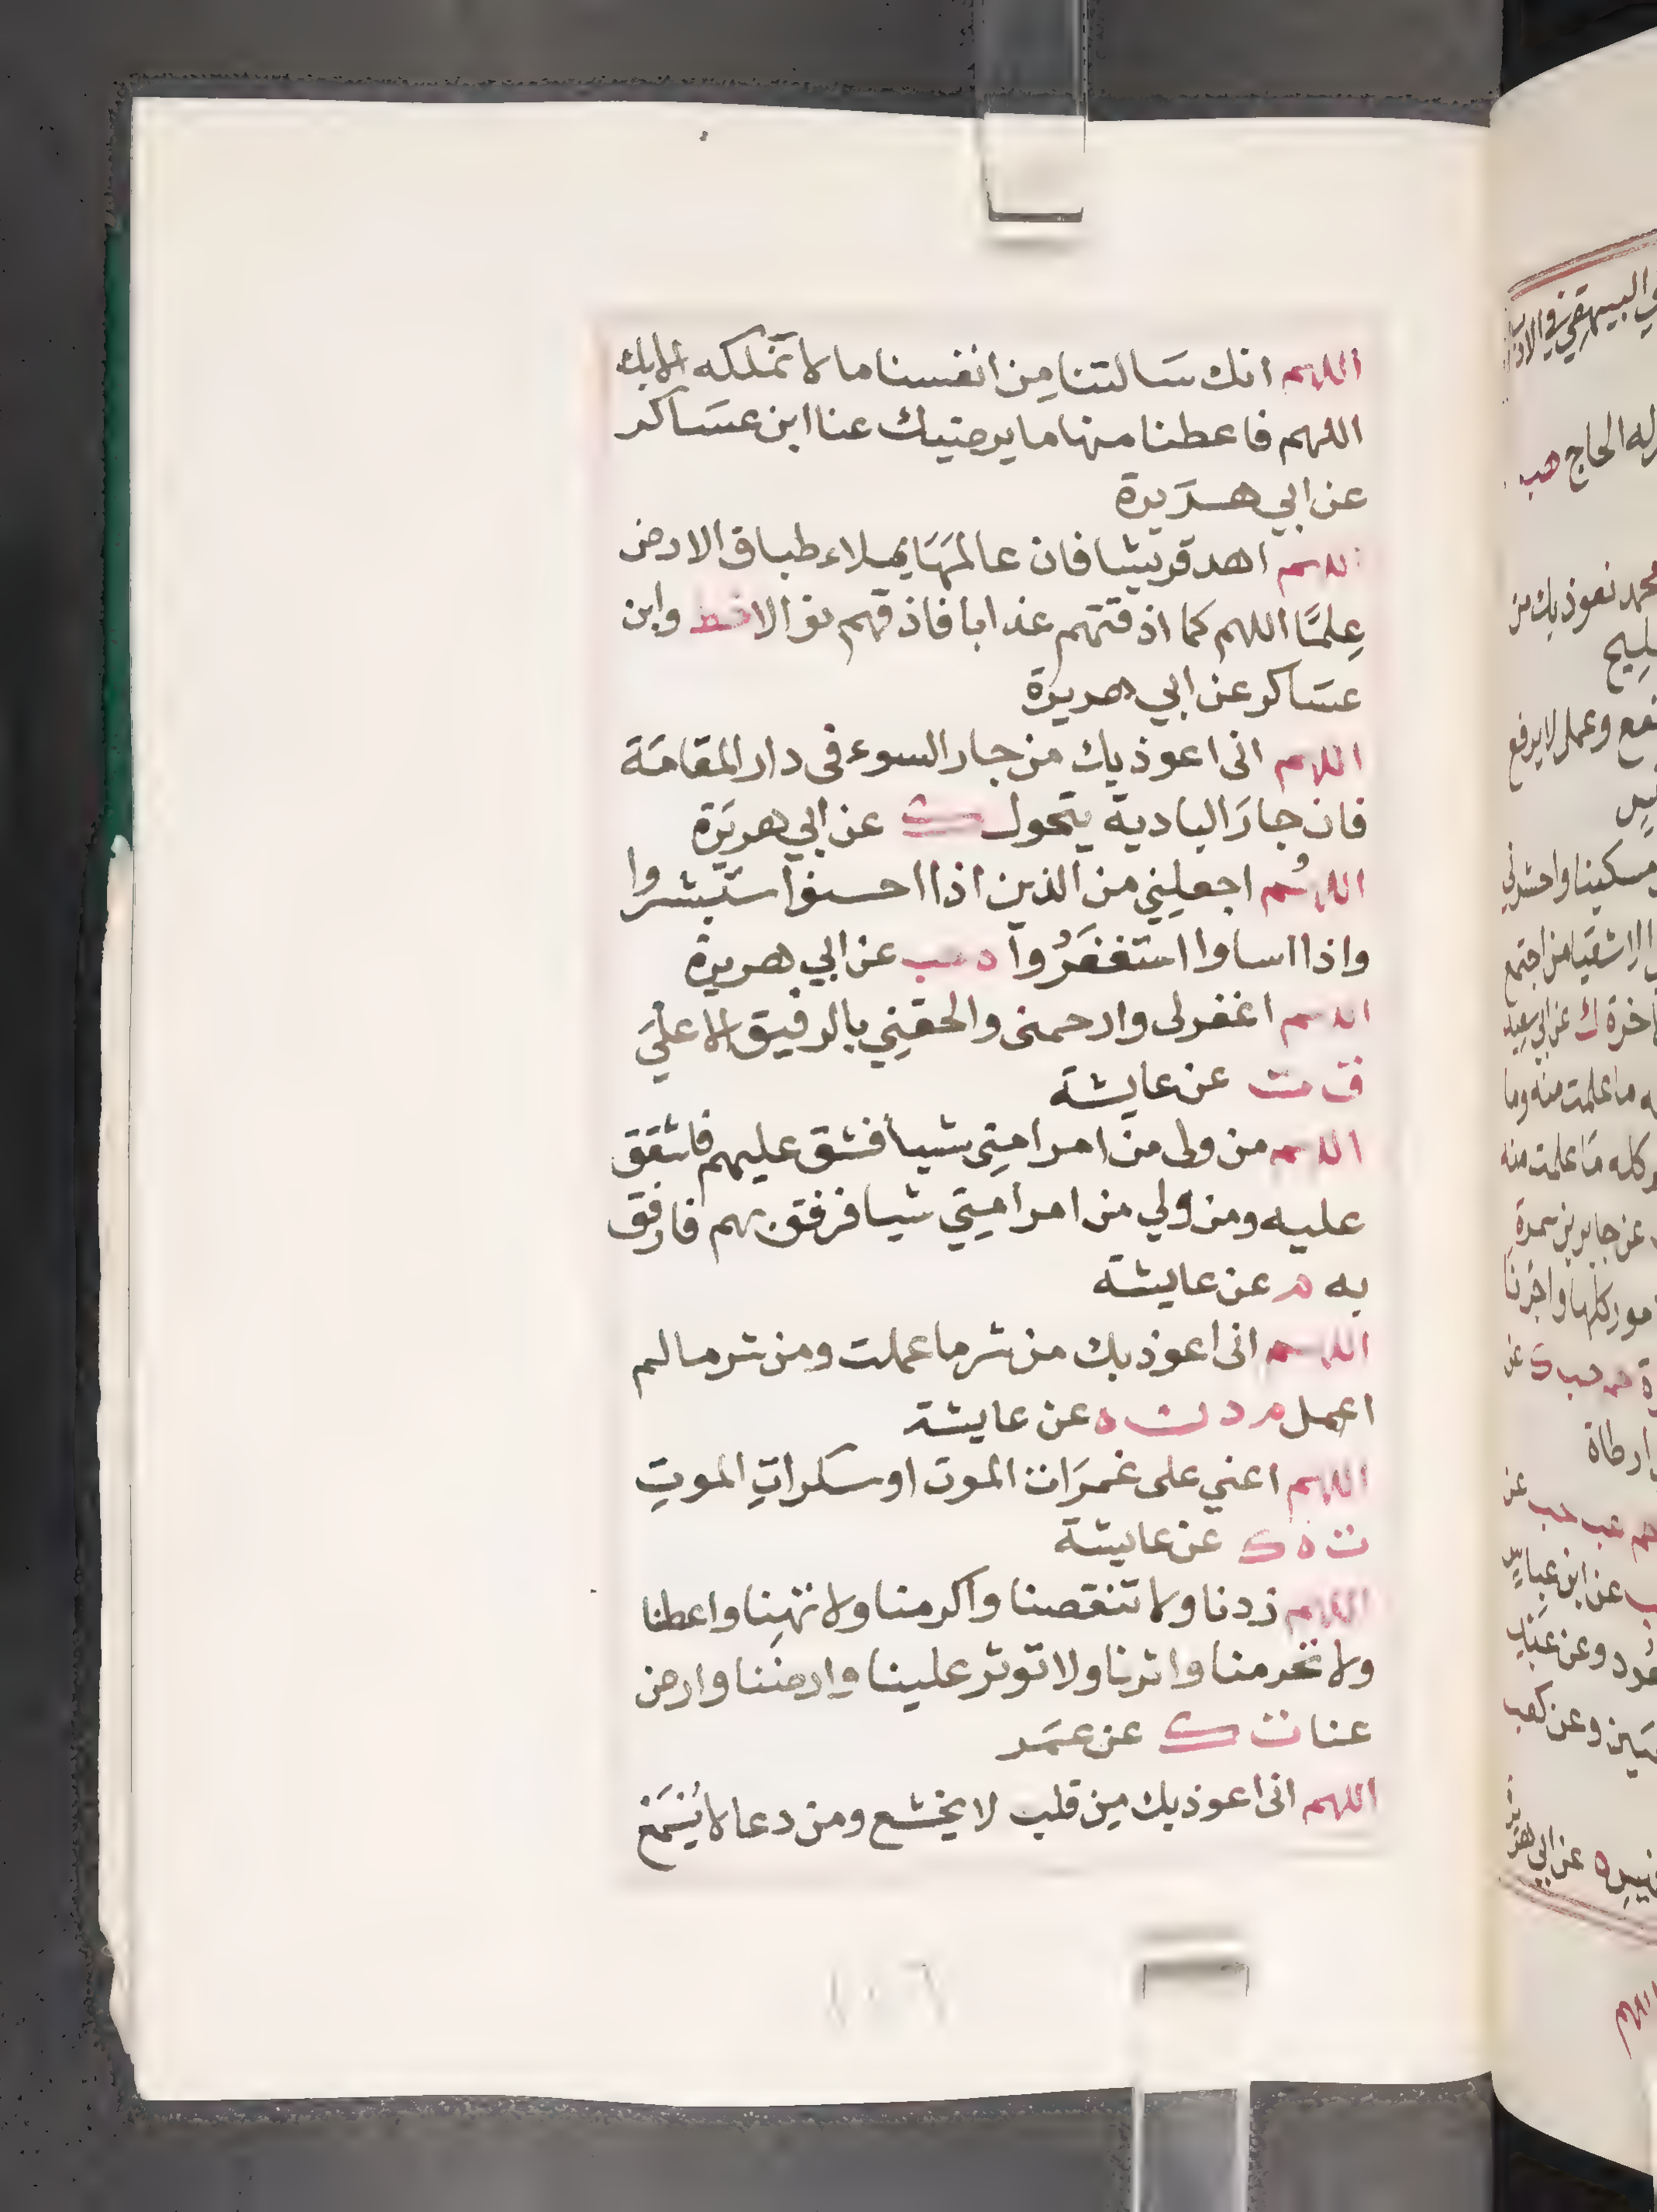 اللهم انك سَالتنا مِن انفسنا ما لا نملكه الا بك
اللهم فاعطنا منها ما يرضيك عنا ابن عسَاكر
عن ابي هريرة
اللهم اهد قريشا فان عالمهَا يملاء طباق الارض
عِلمًا اللهم كما اذقتهم عذابا فاذقهم نوالا خط وابن
عسَاكر عن ابي هريرة
اللهم انى اعوذ بك من جار السوء فى دار المقامَة
فان جارَ البادية يتحول ك عن ابي هريَرة
اللهُم اجعلِني من الذين اذا احسنوا استبشروا
واذا اساوا استغفَرُوا ه هب عن ابي هريرة
اللهم اغفر لى وارحمنى والحقنِي بالرفيق الاعلَي
ق ت عن عايشة
اللهم من ولى من امر امتِى شيا فشق عليهم فاشقق
عليه ومن ولي من امر امتِي شيا فرفق بهم فارفق
به م عن عايشة
اللهم انى اعوذ بك من شر ما عملت ومن شر ما لم
اعمل م د ن ه عن عايشة
اللهم اعني على غمرَات الموت او سكراتِ الموتِ
ت ه ك عن عايشة
اللهم زدنا ولا تنقصنا واكرمنا ولا تهِنا واعطنا
ولا تحرمنا واثرنا ولا توثر علينا وارضنا وارض
عنا ت ك عن عمَر
اللهم انى اعوذ بك مِن قلب لا يخشع ومن دعا لا يُسمَع